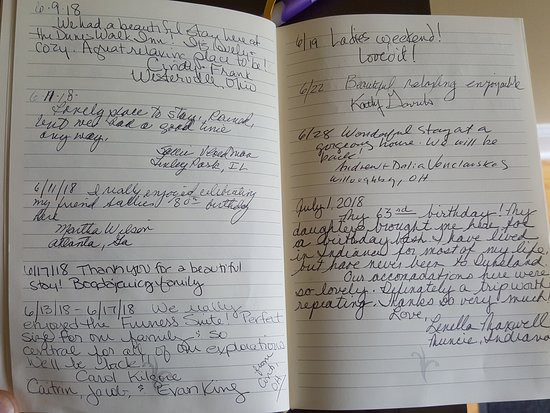 6-9-18
We had a beautiful stay here at
the DunesWalk Inn! It's lovely &
cozy. A great relaxing place to be!
Cindy & Frank
Westerville, Ohio
6-11-18-
Lovely place to stay. Rained,
but we had a good time
any way.
Tinley Park, IL
6/11/18 I really enjoyed celebrating
my friend Sallie's 80th birthday
here
Martha Wilson
Atlanta, Ga
6/17/18 Thank you for a beautiful
stay! family
6/13/18 - 6/17/18 We really
enjoyed the Funness Suite! Perfect
size for our family & so
central for all of our explorations
We'll be back!!
Carol Kilgore
Caitrin, Jacob, & Evan King
from
6/19 Ladies weekend!
Loved it!
6/22 Beautiful Relaxing enjoyable
Kathy
6/28 Wonderful stay at a
gorgeous house. We will be
back!
Andrew & Dalia Venclauskas
Willoughby, OH
July 1, 2018
My 63rd birthday! My
daughters brought me here for
a birthday wish I have lived
in Indiana for most of my life,
but have never been to Duneland
Our accomondations here were
so lovely. Definately a trip worth
repeating. Thanks so very much!
Love,
Lenella Maxwell
Muncie, Indiana